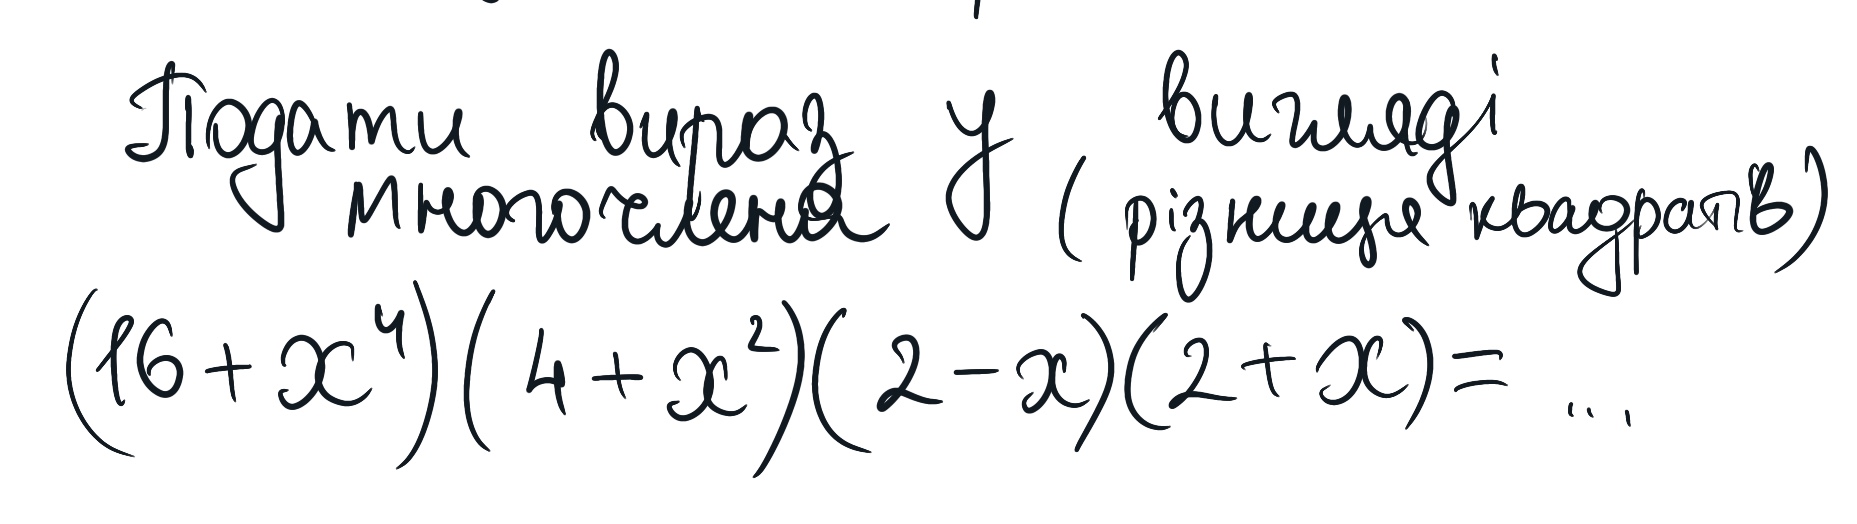 Подати вираз у вигляді
многочлена (різниця квадратів)
(16+x⁴)(4+x²)(2-x)(2+x)= ...